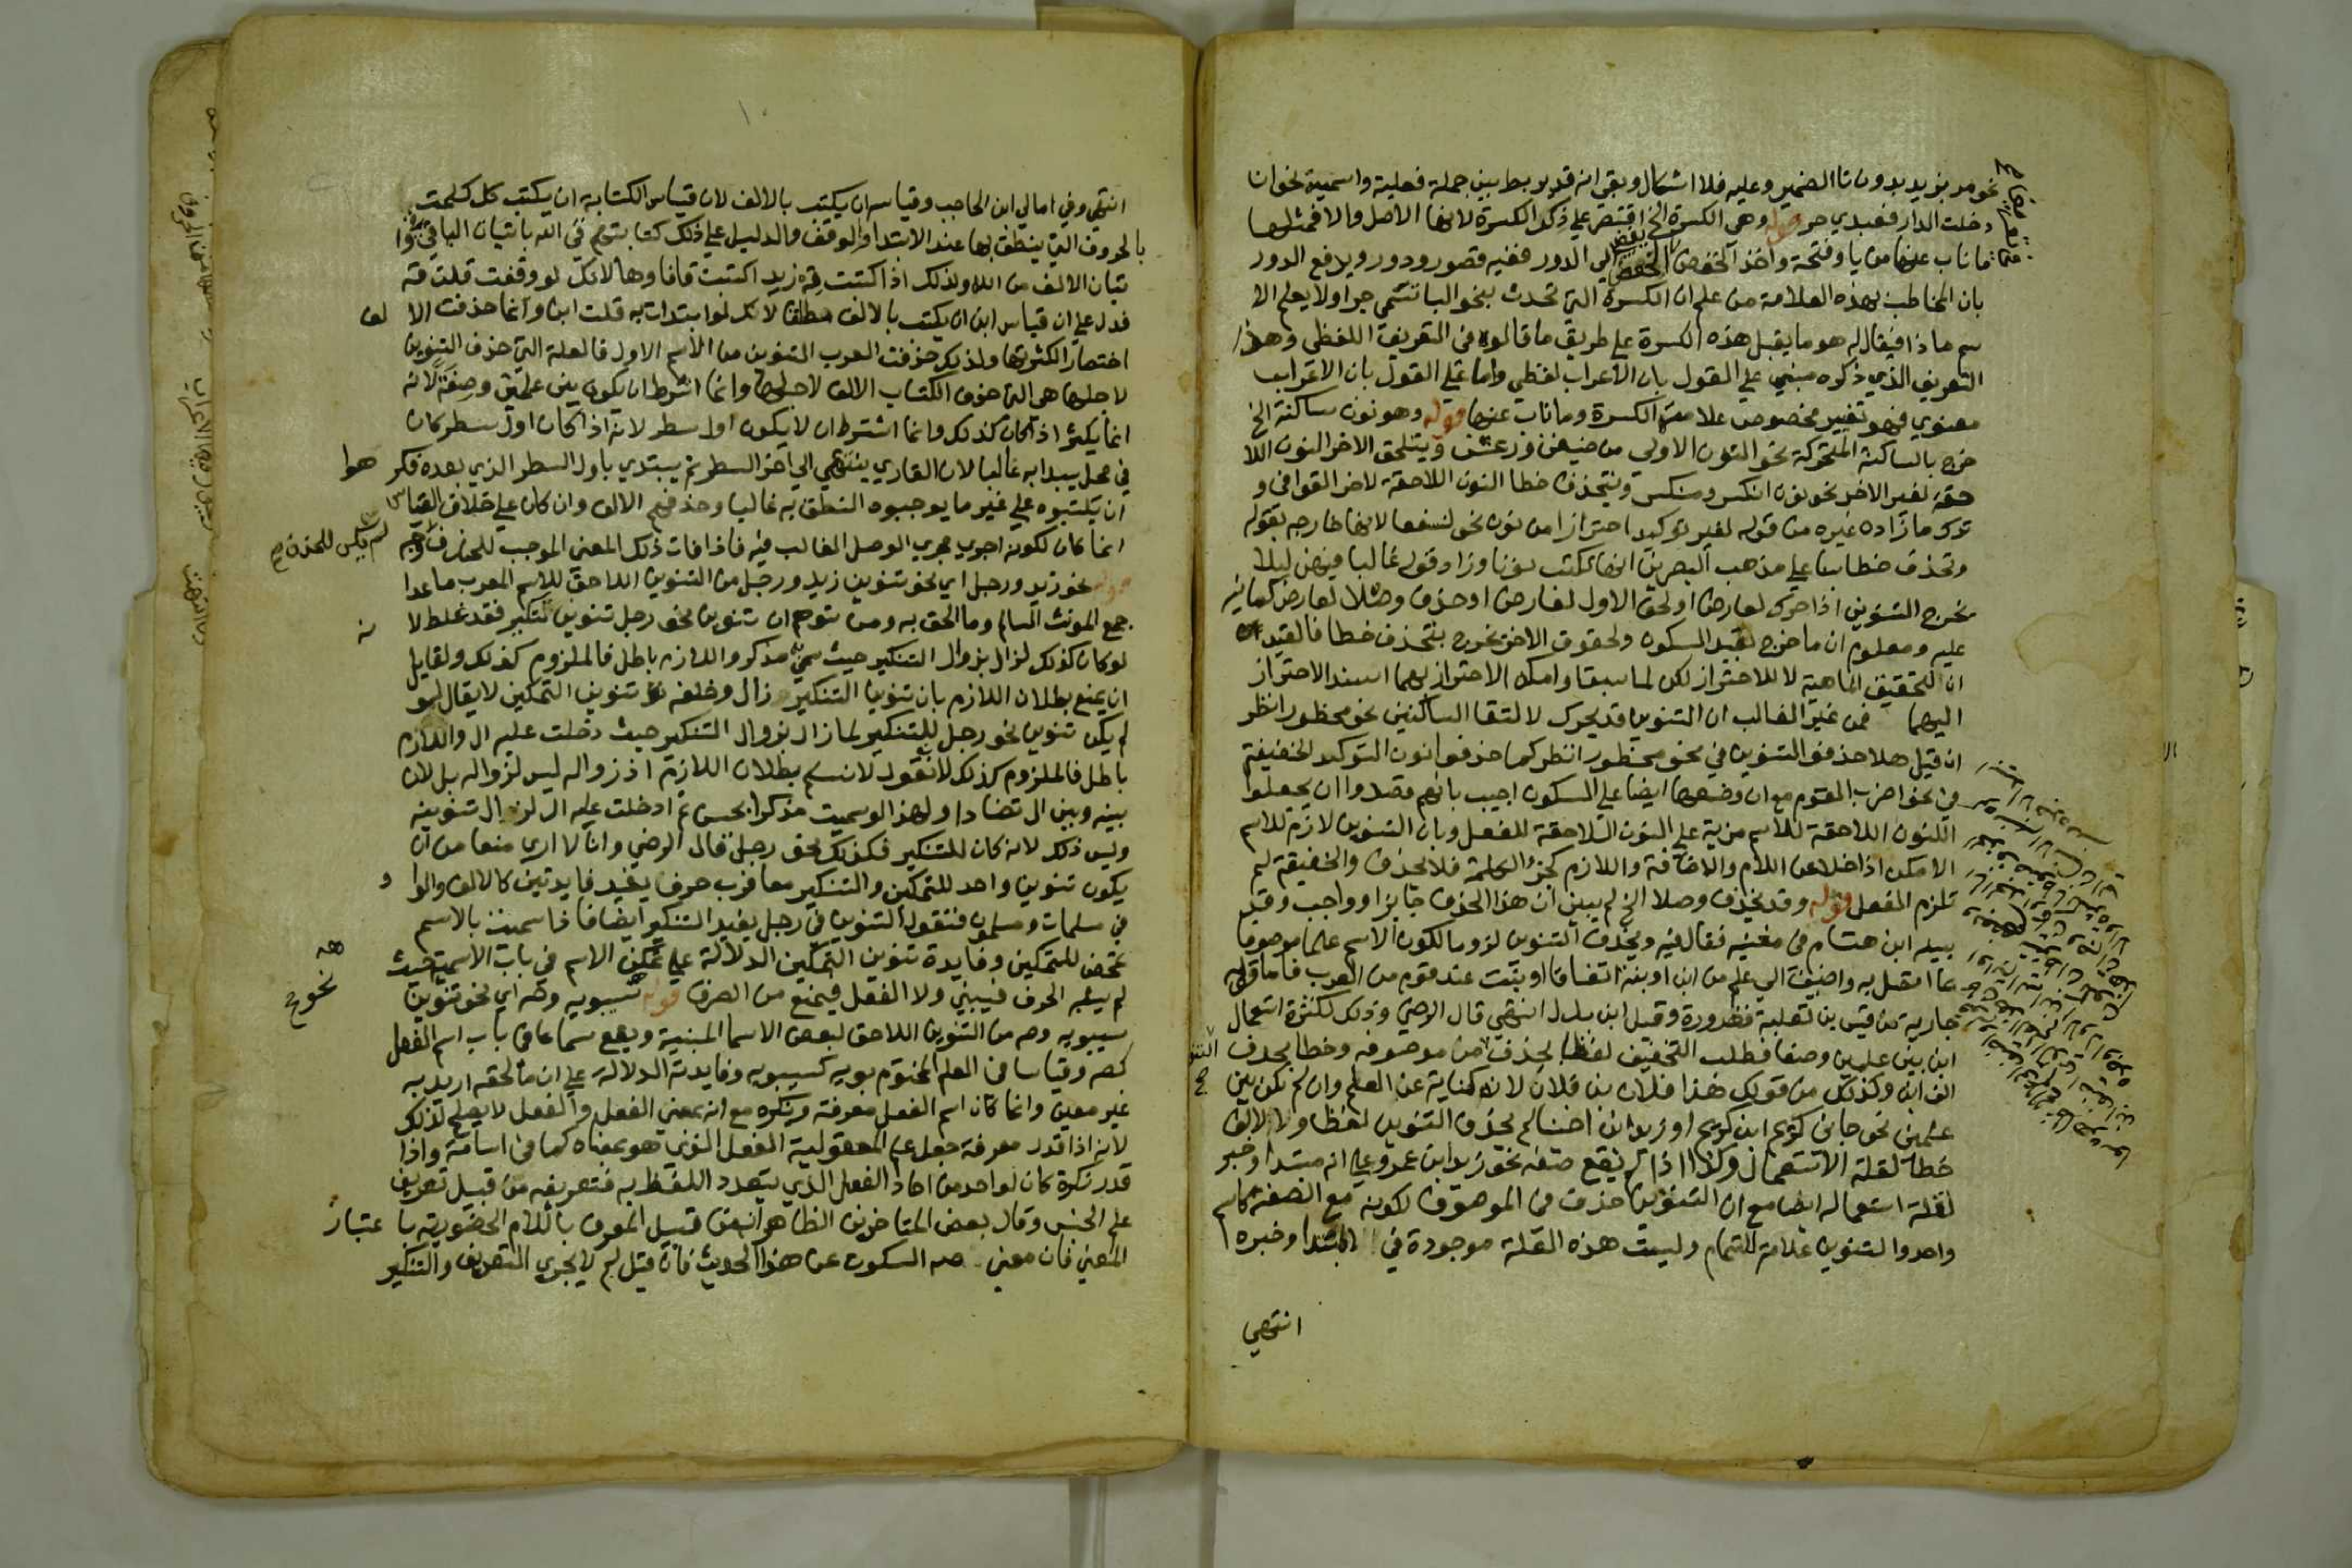 نحو مر بزيد بدون تا الضمير وعليه فلا اشكال وبقي انه قد يربط بين جملة فعلية واسمية نحو ان
دخلت الدار فعبدي حر قوله وهي الكسرة الخ اقتصر علي ذكر الكسرة لانها الاصل والا فمثلها
ما ناب عنها من يا وفتحة واخذ الخفض في الخفض الي الدور ففيه قصور ودور ويدفع الدور
بان المخاطب بهذه العلامة من علم ان الكسرة التي تحدث بنحو البا تسمي جرا ولا يعلم الا
سم ماذا فيقال له هو ما يقبل هذه الكسرة علي طريق ما قالوه في التعريف اللفظي وهذا
التعريف الذي ذكره مبني علي القول بان الاعراب لفظي واما علي القول بان الاعراب
معنوي فهو تغيير مخصوص علامته الكسرة وما ناب عنها قوله وهو نون ساكنة الخ
خرج بالساكنة المتحركة نحو النون الاولي من ضيفن ورعشن وبتلحق الاخر النون اللا
حقة لغير الاخر نحو نون انكسر ومنكسر وبتحذف خطا النون اللاحقة لاخر القوافي و
ترك ما زاده غيره من قوله لغير توكيد احترازا من نون نحو لنسفعا لانها خارجه بقوله
وتحذف خطا بنا علي مذهب البصريين انها تكتب نونا وزاد قوله غالبا فيهن ليلا
يخرج التنوين اذا حرك لعارض او لحق الاول لعارض او حذف وصلا لعارض كما ياتي
عليه ومعلوم ان ما خرج بقيد السكون ولحوق الاخر يخرج بتحذف خطا فالقيد ان
ان لتحقيق الماهية لا للاحتراز لكن لما سبقا وامكن الاحتراز بهما اسند الاحتراز
اليهما فمن غير الغالب ان التنوين قد يحرك لالتقا الساكنين نحو محظورا انظر
ان قيل هلا حذفوا التنوين في نحو محظورا انظر كما حذفوا نون التوكيد الخفيفة
في نحو اضرب القوم مع ان وضعهما ايضا علي السكون اجيب بانهم قصدوا ان يجعلوا
اللنون اللاحقة للاسم مزية علي النون اللاحقة للفعل وبان التنوين لازم للاسم
الامكن اذا خلا عن اللام والاضافة واللازم كجزو الكلمة فلا يحذف والخفيفة لم
تلزم الفعل قوله وقد يحذف وصلا الخ لم يبين ان هذا الحذف جايز او واجب وقد
بينه ابن هشام في مغنيه فقال فيه ويحذف التنوين لزوما لكون الاسم علما موصوفا
بما اتصل به واضيف الي علم من ابن او ابنة اتفاقا او بنت عند قوم من العرب فاما قوله
جارية من قيس بن ثعلبة فضرورة وقيل ابن بدل انتهي قال الرضي وذلك لكثرة استعمال
ابن بين علمين وصفا فطلب التخفيف لفظا بحذف من موصوفه وخطا بحذف
الف ابن وكذلك من قولك هذا فلان بن فلان لانه كناية عن العلم وان لم يكن بين
علمين نحو جاني كريم ابن كريم او زيد ابن اخينا لم يحذف التنوين لفظا ولا الالف
خطا لقلة الاستعمال وكذا اذا لم يقع صفة نحو زيد ابن عمرو علي انه مبتدا وخبر
لقلة استعماله ايضا مع ان التنوين حذف من الموصوف لكونه مع الصفة كاسم
واحد والتنوين علامة التمام وليست هذه العلة موجودة في المبتدا وخبره
انتهي
انتهي وفي امالي ابن الحاجب وقياس ان يكتب بالالف لان قياس الكتابة ان يكتب كل كلمة
بالحروف التي ينطق بها عند الابتدا والوقف والدليل علي ذلك كتابتهم في الله باثبات
تيان الالف من الله ولذلك اذا كتبت قه زيد اكتبت قافا وها لانك لو وقفت قلت قه
فدل علي ان قياس ابن ان يكتب بالالف مطلقا لانك لو ابتدات به قلت ابن وانما حذفت الا لف
اختصارا لكثرتها ولذلك حذفت العرب التنوين من الاسم الاول فالعلة التي حذف التنوين
لاجلها هي التي حذف الكتاب الالف لاجلها وانما اشترط ان يكون بين علمين وصفة لانه
انما يكثر اذا كان كذلك وانما اشترط ان لا يكون اول سطر لانه اذا كان اول سطر كان
في محل يبدا به غالبا لان القاري ينتهي الي اخر السطر ثم يبتدي باول السطر الذي بعده فكر هوا
ان يكتبوه علي غير ما يوجبوه النطق به غالبا وحذفهم الالف وان كان علي خلاف القياس
انما كان لكونه اجري مجري الوصل الغالب فيه فاذا فات ذلك المعني الموجب للحذف
قوله نحو زيد ورجل اي نحو تنوين زيد ورجل من التنوين اللاحق للاسم المعرب ما عدا
جمع المونث السالم وما الحق به ومن توهم ان تنوين نحو رجل تنوين تنكير فقد غلط لا نه
لو كان كذلك لزال بزوال التنكير حيث سمي به مذكر واللازم باطل فالملزوم كذلك ولقايل
ان يمنع بطلان اللازم بان تنوين التنكير زال وخلفه تنوين التمكين لا يقال لو
لم يكن تنوين نحو رجل للتنكير لما زال بزوال التنكير حيث دخلت عليه ال واللازم
باطل فالملزوم كذلك لانا نقول لا نسلم بطلان اللازم اذ زواله ليس لزواله بل لان
بينه وبين ال تضادا ولهذا لو سميت مذكرا بحسن ثم ادخلت عليه ال لزال تنوينه
وليس ذلك لانه كان للتنكير فكذلك نحو رجل قال الرضي وانا لا اري منعا من ان
يكون تنوين واحد للتمكين والتنكير معا فرب حرف يفيد فايدتين كالالف والوا و
في مسلمات ومسلمون فنقول التنوين في رجل يفيد التنكير ايضا فاذا سميت بالاسم
تمحض للتمكين وفايدة تنوين التمكين الدلالة علي تمكن الاسم في باب الاسمية حيث
لم يشبه الحرف فيبني ولا الفعل فيمنع من الصرف قوله سيبويه وصه اي نحو تنوين
سيبويه وصه من التنوين اللاحق لبعض الاسما المبنية ويقع سماعا في باب اسم الفعل
كصه وقياسا في العلم المختوم بويه كسيبويه وفايدته الدلالة علي ان ما لحقه اريد به
غير معين وانما كان اسم الفعل معرفة ونكرة مع انه بمعني الفعل والفعل لا يصلح لذلك
لانه اذا قدر معرفة جعل علما لمعقولية الفعل الذي هو بمعناه كما في اسامة واذا
قدر نكرة كان لواحد من احاد الفعل الذي يتعدد اللفظ به فتعريفه من قبيل تعريف
علم الجنس وقال بعض المتاخرين الظاهر انه من قبيل المعرف باللام الحضورية با عتبار
المعني فان معني صه السكوت عن هذا الحديث فان قيل لم لا يجري التعريف والتنكير